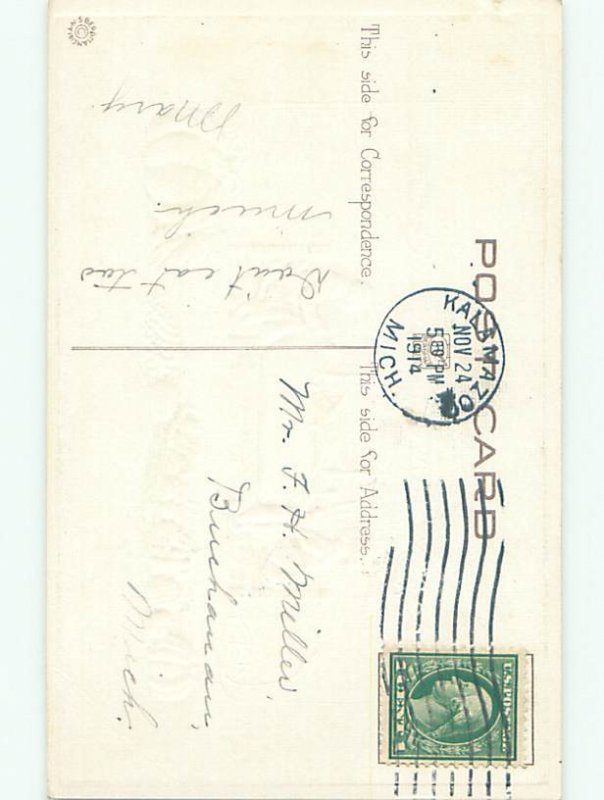 POST CARD
This side for Correspondence.
This side for Address.
KALAMAZOO
NOV 24
5 PM
1914
MICH.
Don't eat too
much.
Mary
Mr. F. H. Miller,
Buchanan,
Mich.
U.S. POSTAGE
1 CENT 1